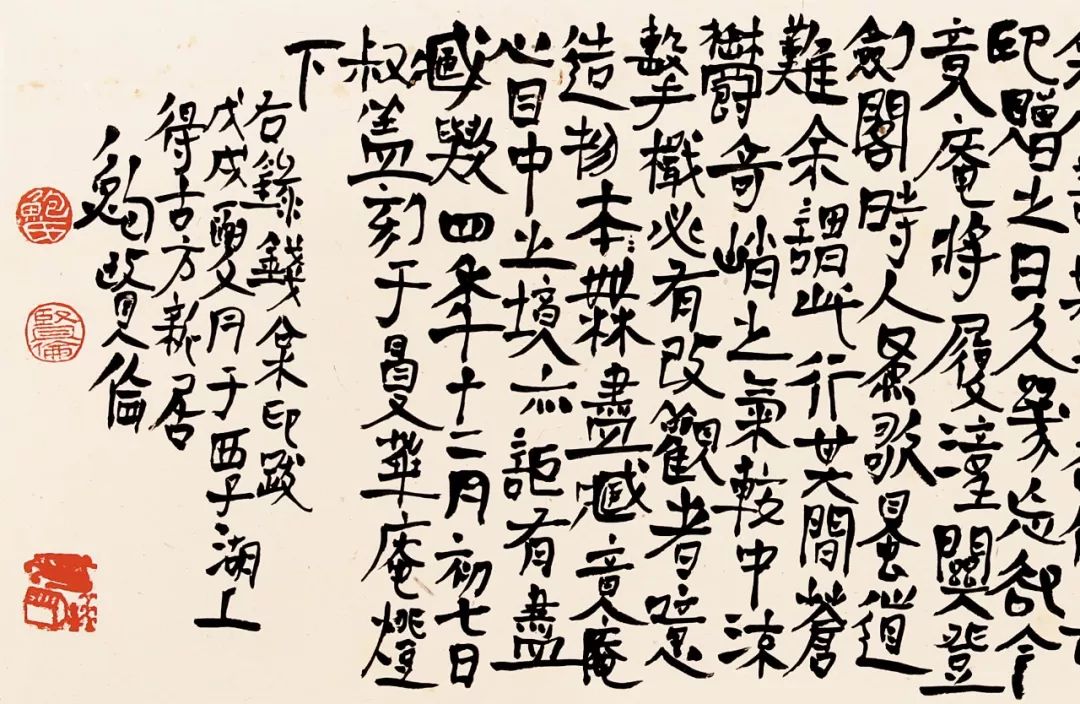 印贈之日久幾忘卻今
意庵將履潼關登
劍閣時人爲歌蜀道
難余謂此行其間蒼
鬱奇峭之氣較中涼
擊手檝必有改觀者噫
造物本無盡藏意庵
心目中之境亦詎有盡
藏歟四年十二月初七日
叔盖刻于曼華庵燈
下
右錄錢枀印跋
戊戌夏月于西子湖上
得古方新居
鮑賢倫
鮑氏
賢倫